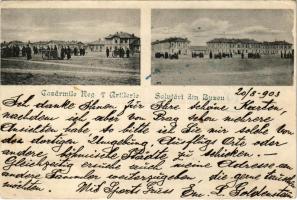 Cazărmile Reg 7 Artilerie
Salutări din Buzeu
20/8. 903
Ich danke Ihnen für Ihre schöne Karte,
nachdem ich aber von Prag schon mehrere
Ansichten habe so bitte ich Sie mir solche von
der dortigen Umgebung, Ausflugs Orte oder
andere böhmische Städte zu schicken.
Gleichzeitig ersuche ich meine Adresse an
andere Sammler weiterzugeben die gerne tauschen
möchten. Mit Sport Gruss Em. L. Goldenstein